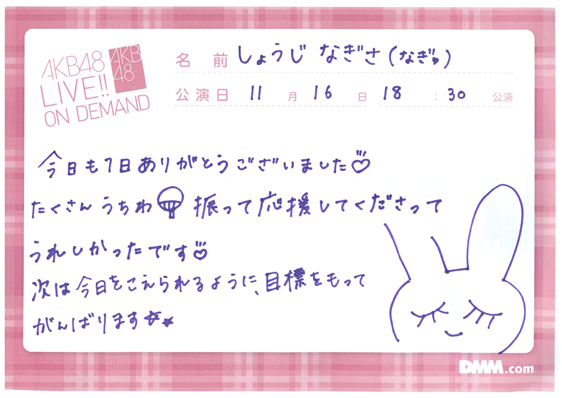 AKB48
LIVE!!
ON DEMAND
AKB
48
名 前 しょうじ なぎさ(なぎゅ)
公演日 11 月 16 日 18 : 30 公演
今日も1日ありがとうございました
たくさんうちわ 振って応援してくださって
うれしかったです
次は今日をこえられるように、目標をもって
がんばります
DMM.com